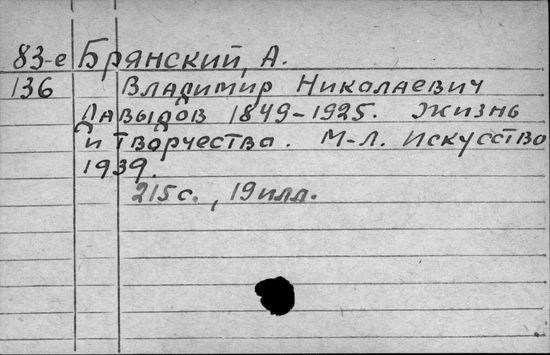 83-е Брянский, А.
136 Владимир Николаевич
Давыдов 1849-1925. Жизнь
и творчества. М-Л. Искусство
1939.
215с., 19илл.